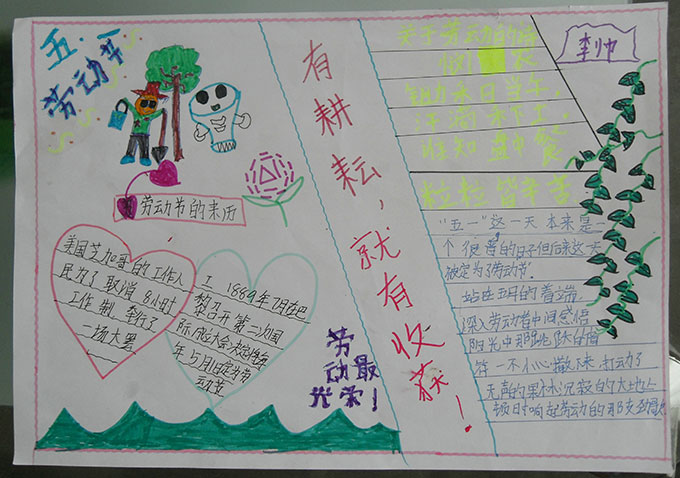 五.一
劳动节
劳动节的来历
美国芝加哥的工作人
民为了取消8小时
工作制,举行了
一场大罢
工 1889年7月在巴
黎召开第二次国
际成立大会决定
年5月1日定为劳
动节
劳动最
光荣!
有耕耘,就有收获!
关于劳动的诗
锄禾日当午,
汗滴禾下土。
谁知盘中餐
粒粒皆辛苦
李帅
"五一"这一天本来是
个很普的日子但这天
被定为了劳动节.
站在五月的着端.
深入劳动者中间感悟
阳光中那跳跃
一不小心撒下来,打动了
无声的果沉寂的大地上
顿时响起劳动的那支劲歌